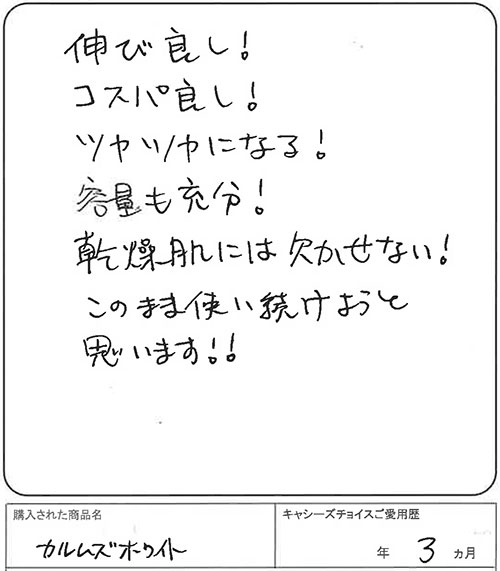 伸び良し!
コスパ良し!
ツヤツヤになる!
容量も充分!
乾燥肌には欠かせない!
このまま使い続けようと
思います!!
購入された商品名
カルムズホワイト
キャシーズチョイスご愛用歴
年 3 カ月